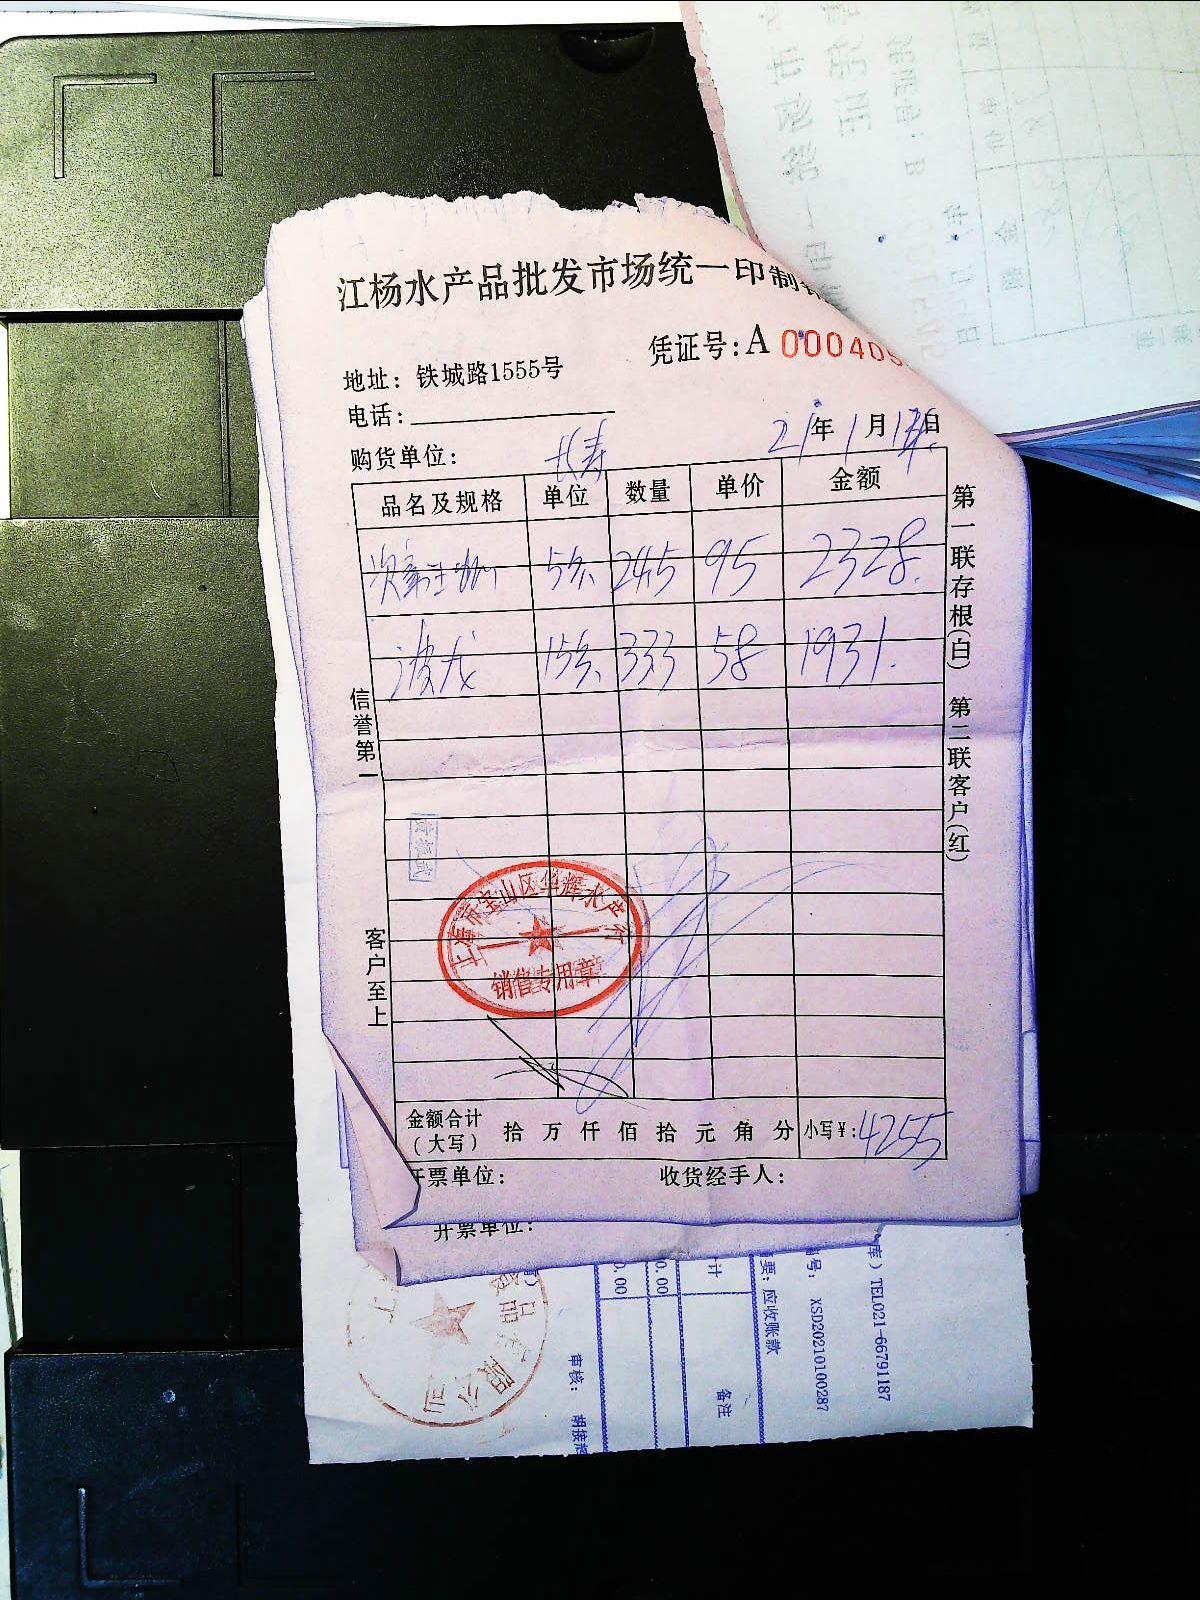 江杨水产品批发市场统一印制
凭证号:A 000405
地址: 铁城路1555号
电话:
购货单位: 长寿
21年1月17日
品名及规格 单位 数量 单价 金额
5条 24.5 95 2328.
波龙 15条 33.3 58 1931.
信誉第一
客户至上
第一联存根(白) 第二联客户(红)
上海市宝山区华辉水产行
销售专用章
金额合计(大写) 拾 万 仟 佰 拾 元 角 分 小写¥: 4255
开票单位: 收货经手人:
开票单位:
库) TEL021-66791187
编号: XSD20210100287
摘要: 应收账款
计 备注
0.00
0.00
审核: 胡接
食品有限公司